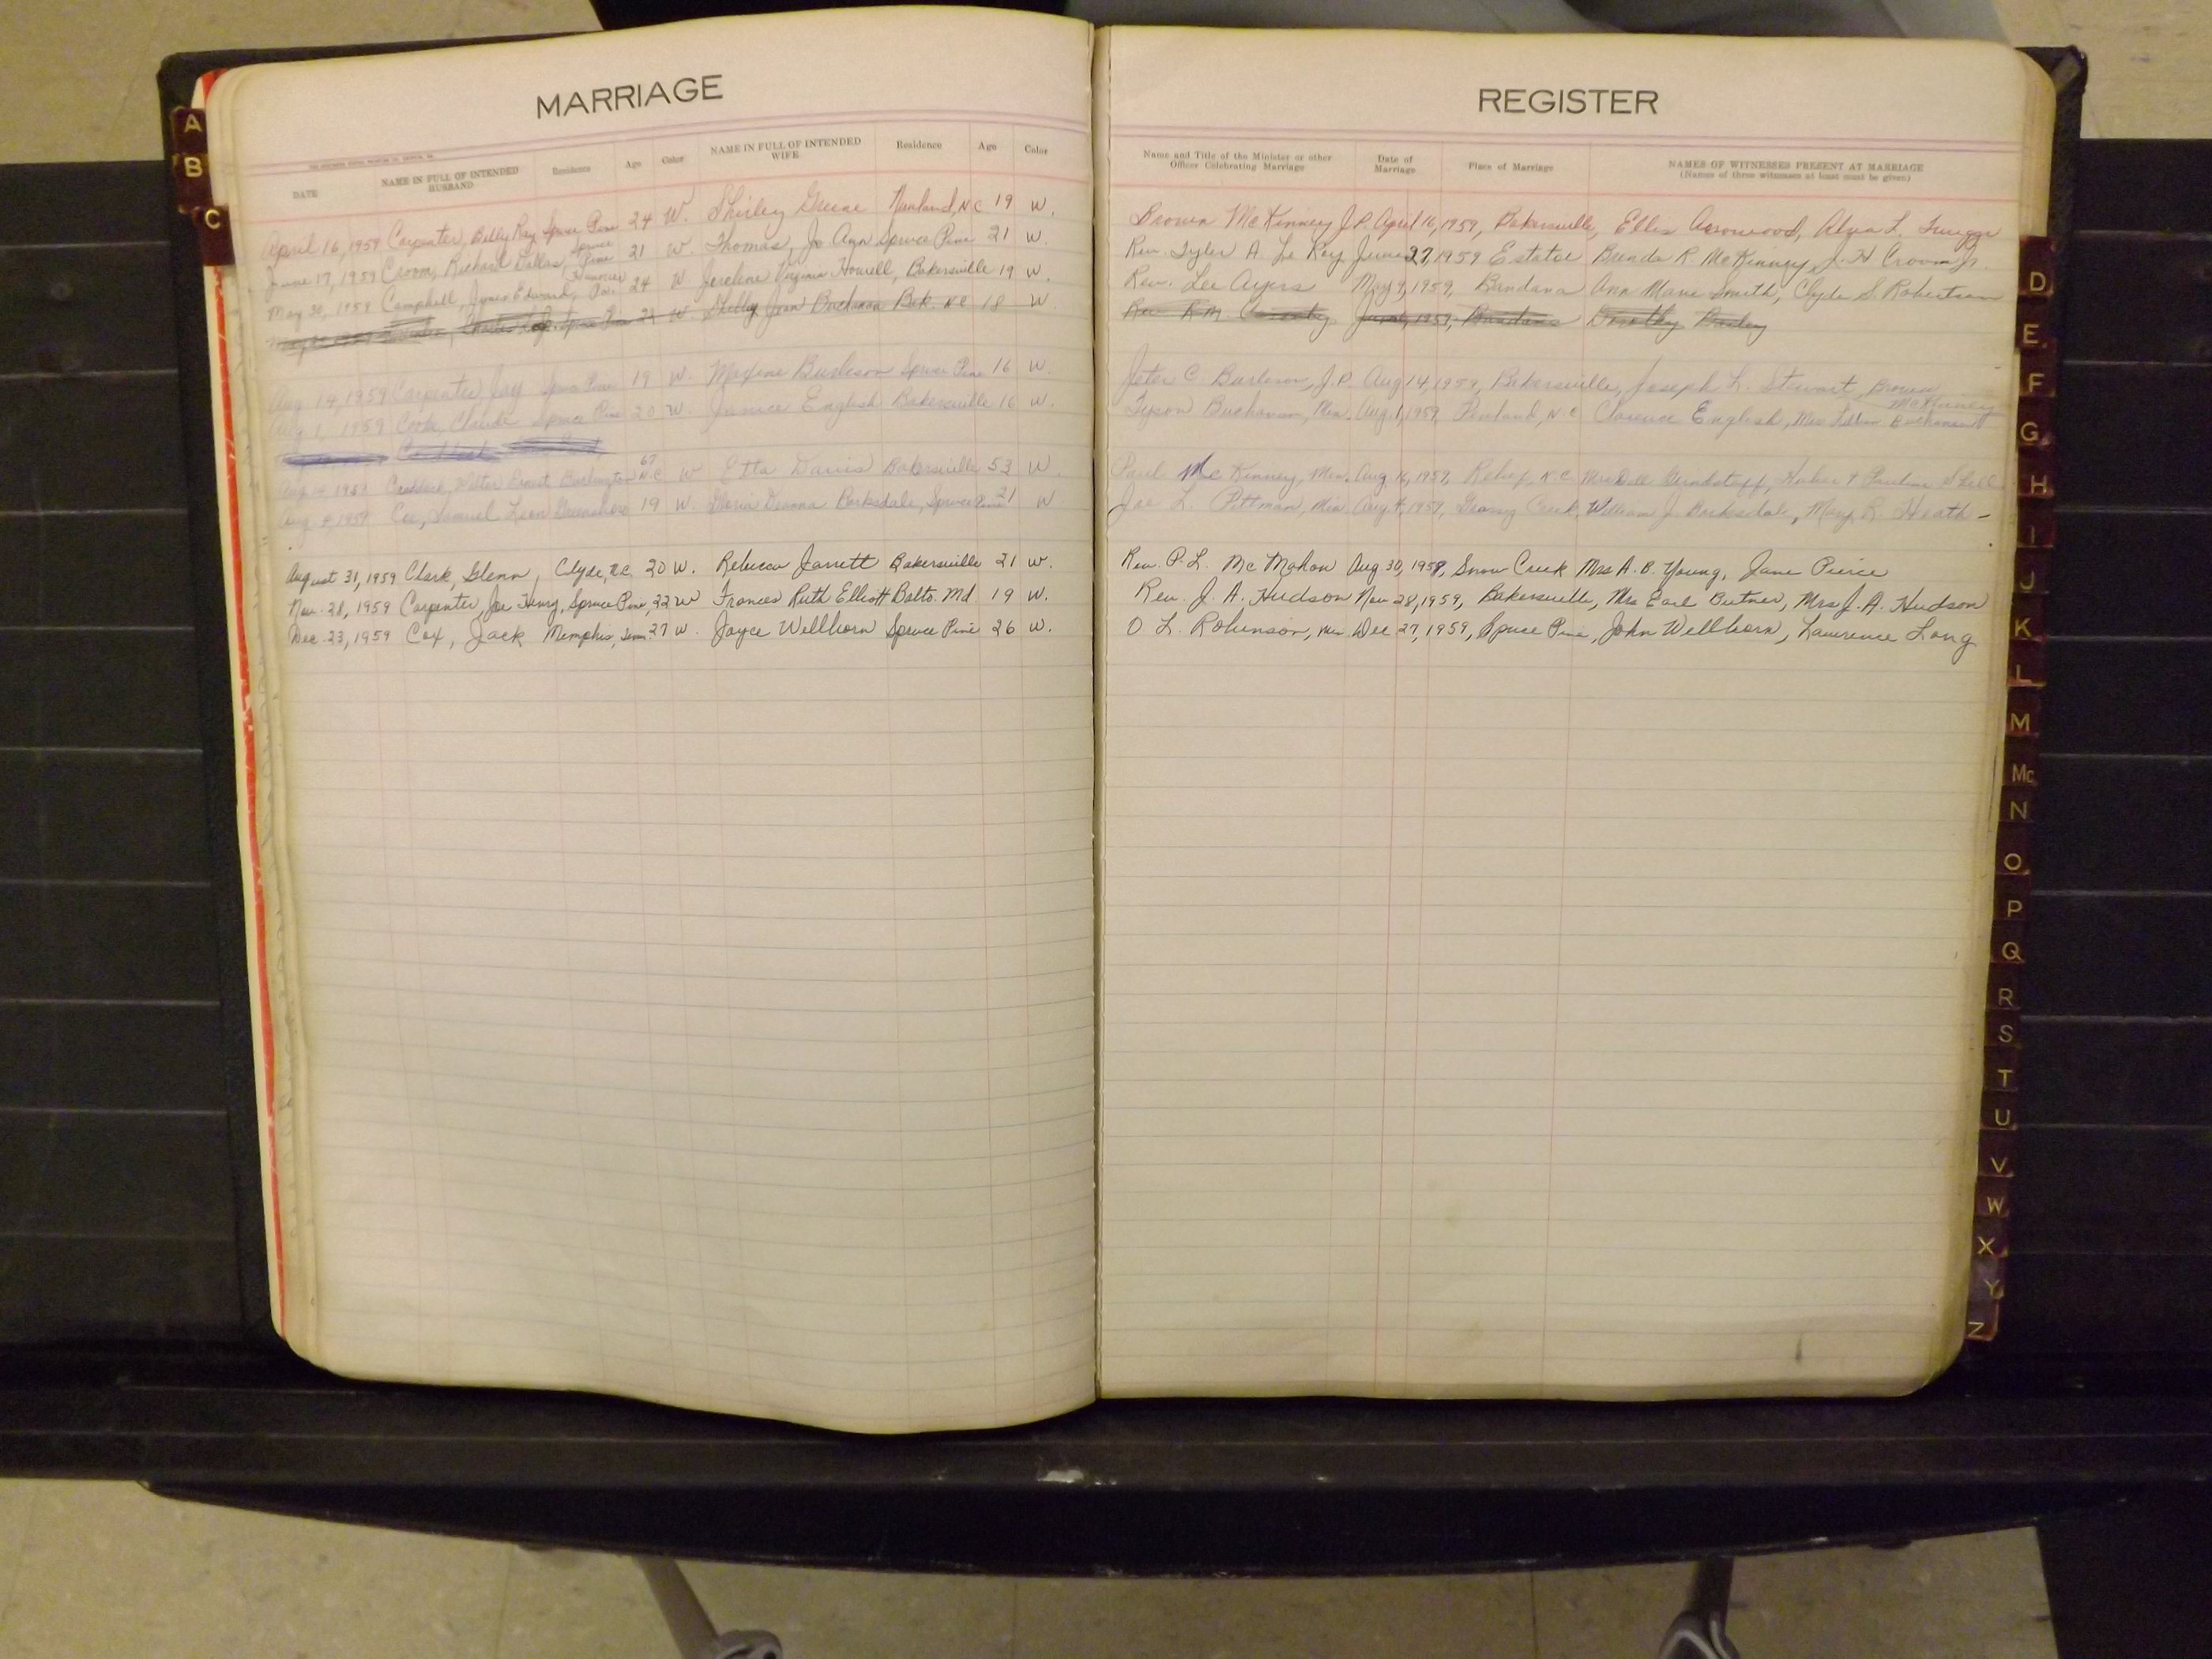 MARRIAGE
DATE NAME IN FULL OF INTENDED HUSBAND Residence Age Color NAME IN FULL OF INTENDED WIFE Residence Age Color
April 16, 1959 Carpenter, Billy Ray Spruce Pine 24 W. Shirley Greene Newland, N.C 19 W.
June 17, 1959 Croom, Richard Dallas, Spruce Pine 21 W. Thomas, Jo Ann Spruce Pine 21 W.
May 30, 1959 Campbell, James Edward, 24 W Jerelene Virginia Howell, Bakersville 19 W.
Spruce Pine 21 W Shelby Jean Buchanan Bak. N.C. 18 W
Aug 14, 1959 Carpenter, Jay Spruce Pine 19 W. Maxine Burleson Spruce Pine 16 W.
Aug 1, 1959 Cook, Claude Spruce Pine 20 W. Janice English Bakersville 16 W.
Aug 14, 1959 Craddock, Walter Ernest Burlington N.C 67 W Etta Davis Bakersville 53 W.
Aug 9, 1959 Coe, Samuel Leon Greensboro 19 W. Gloria Deanna Barksdale, Spruce Pine 21 W
August 31, 1959 Clark, Glenn, Clyde, N.C. 20 W. Rebecca Jarrett Bakersville 21 W.
Nov. 28, 1959 Carpenter, Joe Henry, Spruce Pine, 22 W Frances Ruth Elliott Balto. Md 19 W.
Dec. 23, 1959 Cox, Jack Memphis, Tenn. 27 W. Joyce Wellborn Spruce Pine 26 W.
REGISTER
Name and Title of the Minister or other Officer Celebrating Marriage Date of Marriage Place of Marriage NAMES OF WITNESSES PRESENT AT MARRIAGE
(Names of three witnesses at least must be given)
Brown McKinney J.P. April 16, 1959, Bakersville, Ellis Arrowood, L.
Rev. Tyler A. Le Key June 27, 1959 Estatoe Brenda R McKinney, J. H Croom Jr.
Rev. Lee Ayers May 9, 1959, Bandana Ann Marie Smith, Clyde S. Robertson
Rev R.M. June 1959, Bandana Dorothy Presley
Jeter C. Burleson, J.P. Aug 14, 1959, Bakersville, Joseph L. Stewart, Brown McKinney
Tyson Buchanan, Min. Aug. 1, 1959, Penland, N.C Clarence English, Mrs Buchanan
Paul McKinney, Min. Aug. 16, 1959, Relief, N.C Mrs Dell Grindstaff, Huber & Pauline Shell
Joe L. Pittman, Min. Aug 9, 1959, Grassy Creek, William J. Barksdale, Mary L. Heath -
Rev. P.L. McMahon Aug 30, 1959, Snow Creek Mrs A.B. Young, Jane Pierce
Rev. J. A. Hudson Nov 28, 1959, Bakersville, Mrs Earl Butner, Mrs J. A. Hudson
O. L. Robinson, Min Dec 27, 1959, Spruce Pine, John Wellborn, Lawrence Long
A
B
C
D
E
F
G
H
I
J
K
L
M
Mc
N
O
P
Q
R
S
T
U
V
W
X
Y
Z